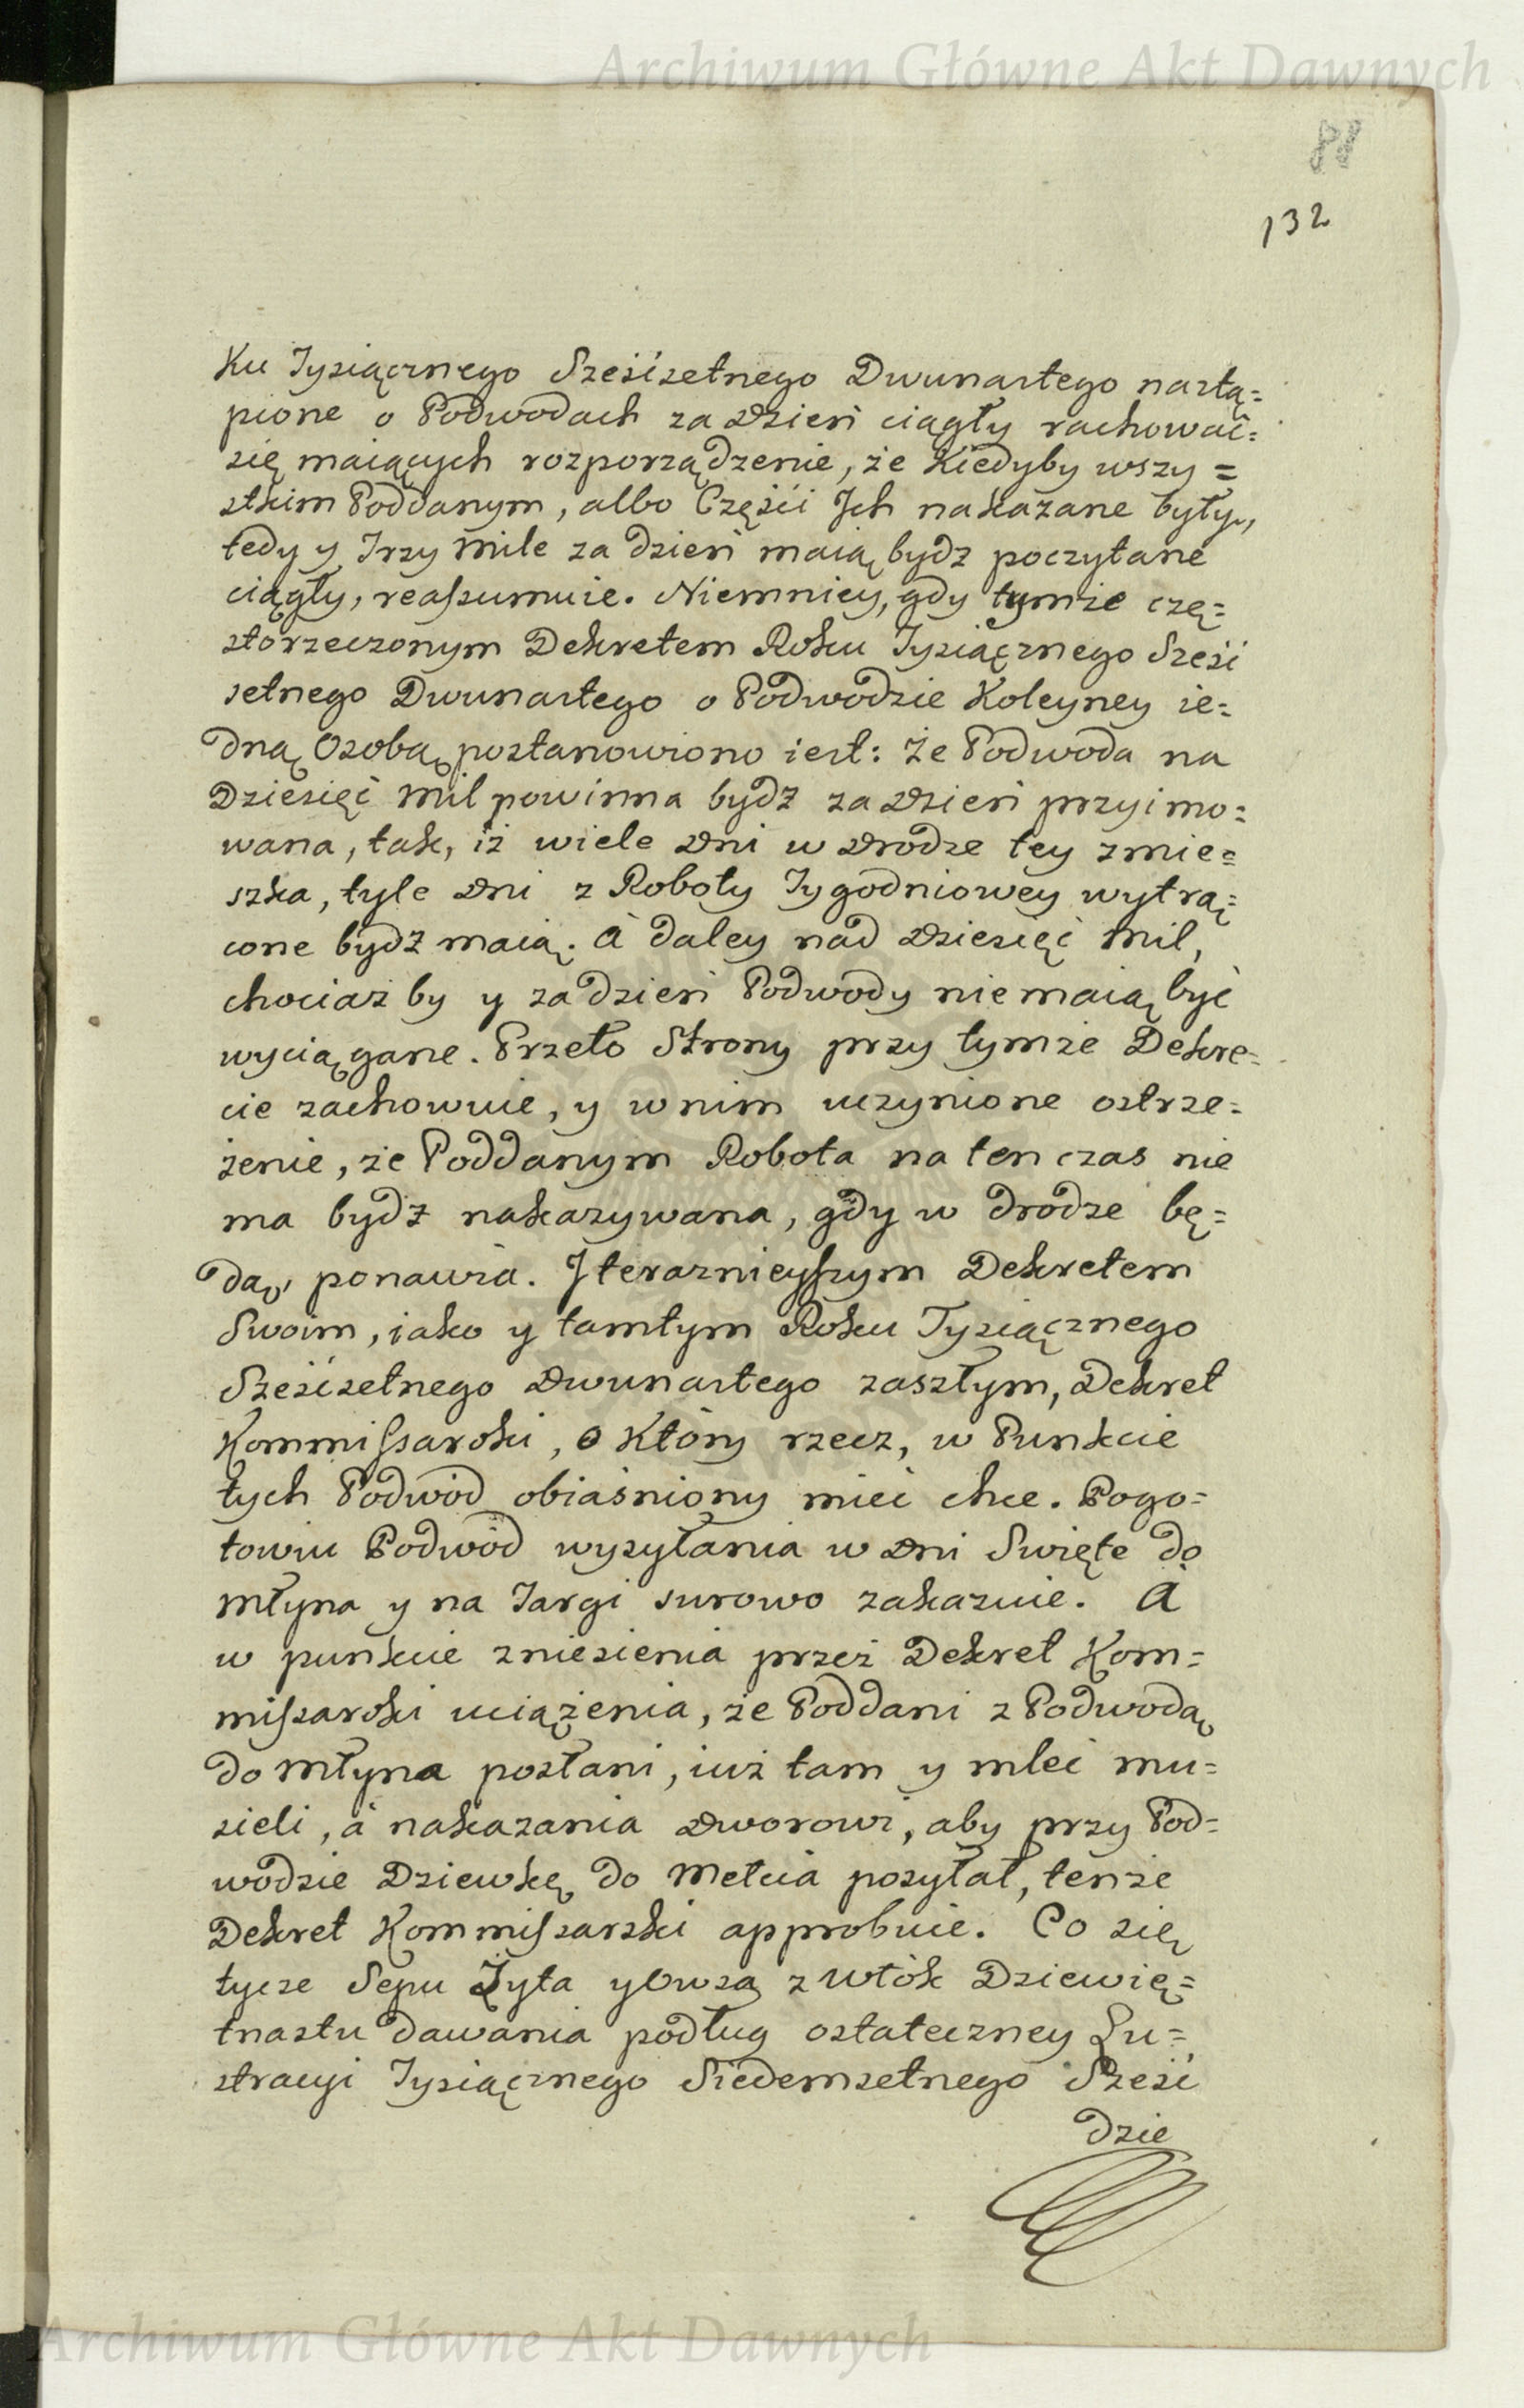 Archiwum Główne Akt Dawnych
81
132
Ku Tysiącznego Sześćsetnego Dwunastego nastą=
pione o Podwodach za Dzień ciągły rachować=
się maiących rozporządzenie, że Kiedyby wszy=
stkim Poddanym, albo Części Jch nakazane były,
tedy y Trzy Mile za dzień maią bydz poczytane
ciągły, reassumuie. Niemniey, gdy tymże czę=
storzeczonym Dekretem Roku Tysiącznego Sześć
setnego Dwunastego o Podwodzie Koleyney ie=
dną Osobą postanowiono iest: Że Podwoda na
Dziesięć Mil powinna bydź za Dzień przyimo=
wana, tak, iż wiele Dni w Drodze tey zmie=
szka, tyle Dni z Roboty Tygodniowey wytrą=
cone bydź maią. A daley nad Dziesięć Mil,
chociaż by y za dzień Podwody nie maią być
wyciągane. Przeto Strony przy tymże Dekre=
cie zachowuie, y w nim uczynione ostrze=
żenie, że Poddanym Robota na ten czas nie
ma bydź nakazywana, gdy w drodze bę=
dą, ponawia. J terazniejszym Dekretem
Swoim, iako y tamtym Roku Tysiącznego
Sześćsetnego Dwunastego zaszłym, Dekret
Kommissarski, o Który rzecz, w Punkcie
tych Podwód obiaśniony mieć chce. Pogo=
towiu Podwód wysyłania w Dni Swięte do
Młyna y na Targi surowo zakazuie. A
w punkcie zniesienia przez Dekret Kom=
missarski uciążenia, że Poddani z Podwodą
do Młyna posłani, iuż tam y mleć mu=
sieli, a nakazania Dworowi, aby przy Pod=
wodzie Dziewkę do Mełcia posyłał, tenże
Dekret Kommissarski approbuie. Co się
tycze Sepu Żyta y Owsa z Włók Dziewię=
tnastu dawania podług ostateczney Lu=
stracyi Tysiącznego Siedemsetnego Sześć
dzie
Archiwum Główne Akt Dawnych